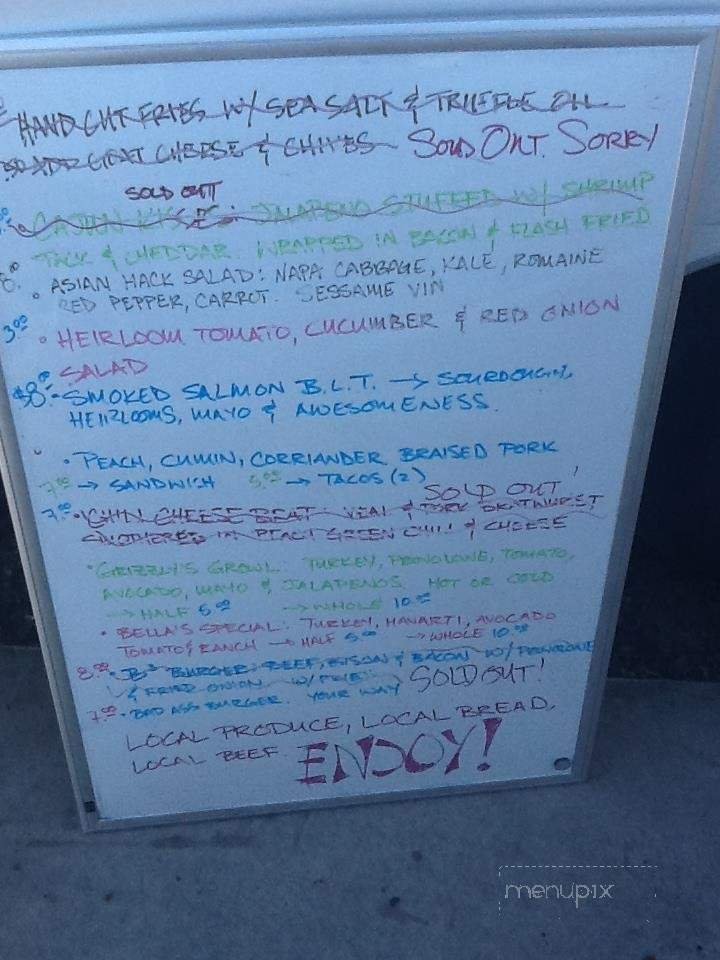 HAND CUT FRIES W/ SEA SALT & TRUFFLE OIL
ADD GOAT CHEESE & CHIVES SOLD OUT. SORRY
SOLD OUT
CAJUN KISSES: JALAPENO STUFFED W/ SHRIMP
JACK & CHEDDAR. WRAPPED IN BACON & FLASH FRIED
8.⁰ • ASIAN HACK SALAD: NAPA CABBAGE, KALE, ROMAINE
RED PEPPER, CARROT. SESSAME VIN
3⁰⁰ • HEIRLOOM TOMATO, CUCUMBER & RED ONION
SALAD
$8.⁰ - SMOKED SALMON B.L.T. → SOURDOUGH,
HEIRLOOMS, MAYO & AWESOMENESS.
• PEACH, CUMIN, CORRIANDER BRAISED PORK
7.⁰⁰ → SANDWICH 5.⁰⁰ → TACOS (2)
SOLD OUT!
7.⁰⁰ • CHEESE VEAL & PORK BRATWURST
SMOTHERED IN GREEN CHILI & CHEESE
• GRIZZLY'S GROWL: TURKEY, PROVOLONE, TOMATO,
AVOCADO, MAYO & JALAPENOS. HOT OR COLD
→ HALF 5.⁰⁰ → WHOLE 10.⁰⁰
• BELLA'S SPECIAL: TURKEY, HAVARTI, AVOCADO
TOMATO & RANCH → HALF 5.⁰⁰ → WHOLE 10.⁰⁰
8.⁰⁰ • B³ BURGER: BEEF, BISON & BACON W/ PROVOLONE
& FRIED ONION SOLD OUT!
7.⁰⁰ • BAD ASS BURGER. YOUR WAY
LOCAL PRODUCE, LOCAL BREAD,
LOCAL BEEF ENJOY!
menupix